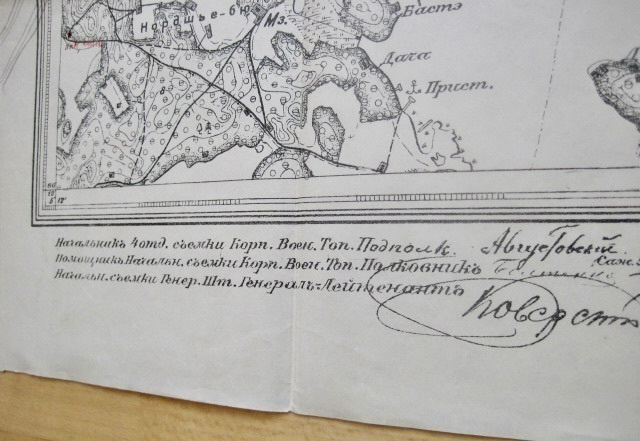 Нордшье-бю
Мз.
Бастэ
Дача
Прист.
Начальникъ 4 отд. съемки Корп. Воен. Топ. Подполк. Августовскій
Помощникъ Начальн. съемки Корп. Воен. Топ. Полковникъ
Начальн. съемки Генер. Шт. Генералъ-Лейтенантъ